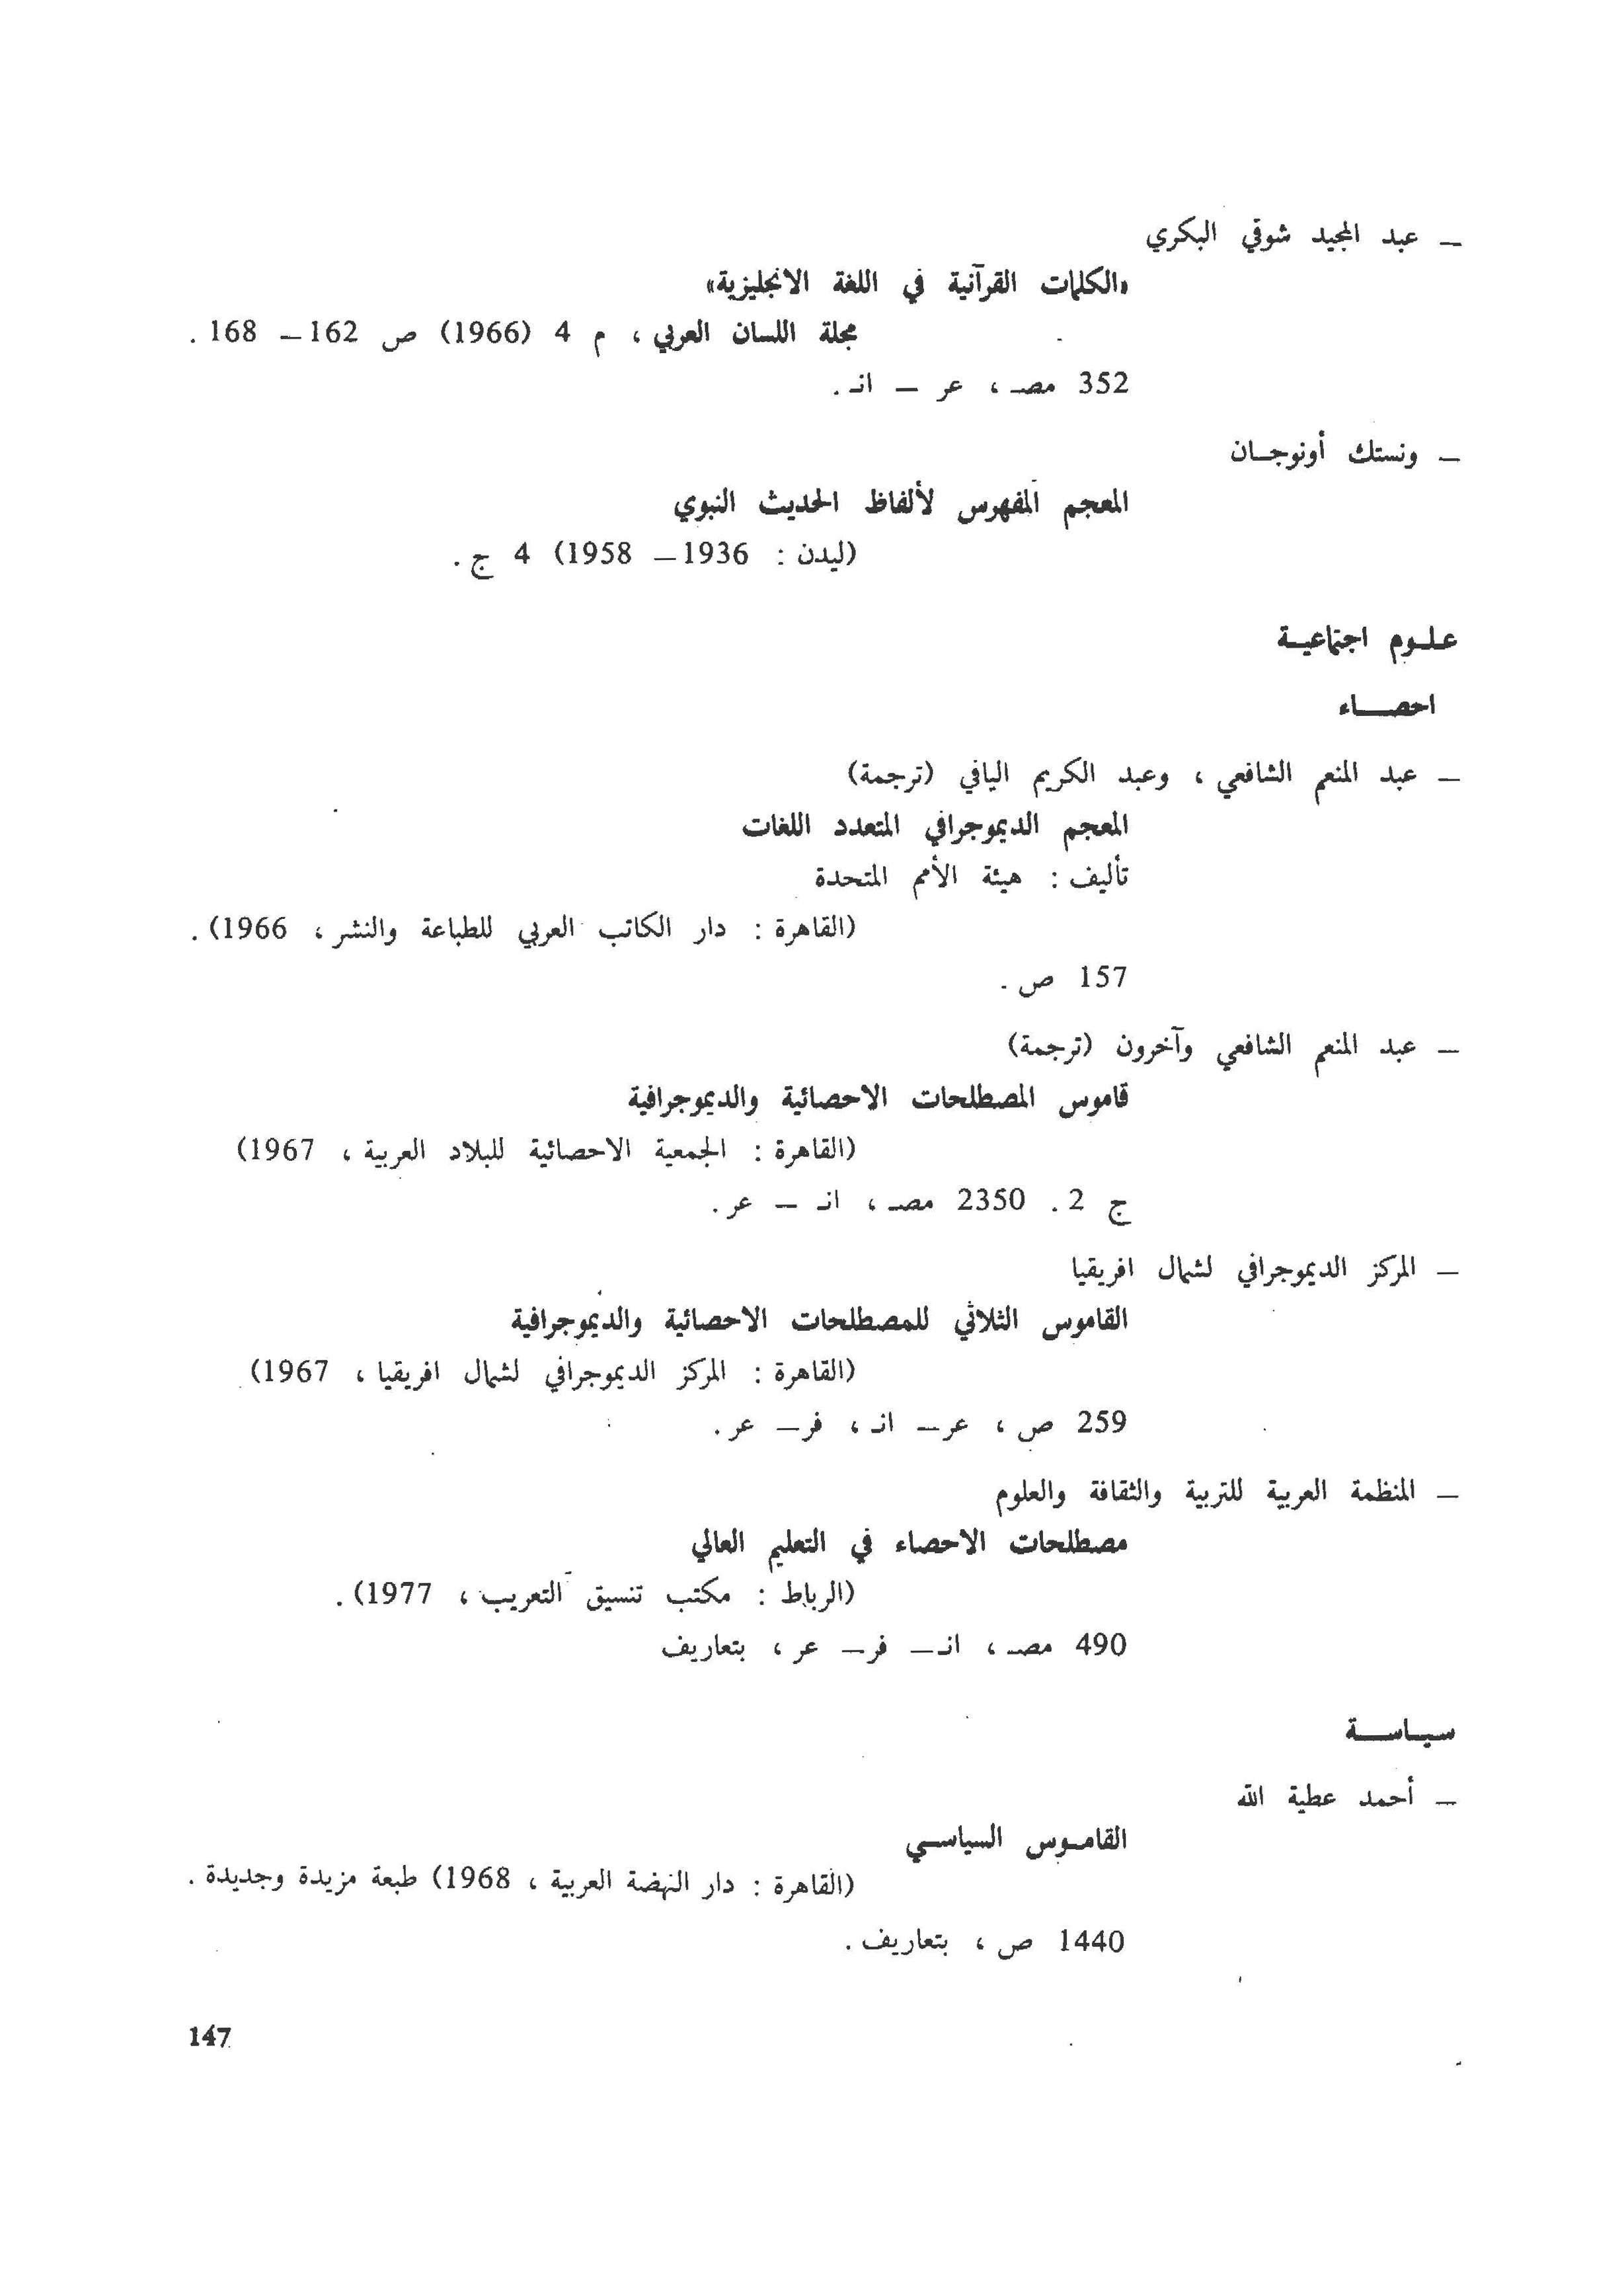 — عبد المجيد شوقي البكري
«الكلمات القرآنية في اللغة الانجليزية»
مجلة اللسان العربي ، م 4 (1966) ص 162 — 168 .
352 مصـ ، عر — انـ .
— ونستك أونوجـان
المعجم المفهرس لألفاظ الحديث النبوي
(ليدن : 1936 — 1958) 4 ج .
علـوم اجتماعيـة
احصـــاء
— عبد المنعم الشافعي ، وعبد الكريم اليافي (ترجمة)
المعجم الديموجرافي المتعدد اللغات
تأليف : هيئة الأمم المتحدة
(القاهرة : دار الكاتب العربي للطباعة والنشر ، 1966) .
157 ص .
— عبد المنعم الشافعي وآخرون (ترجمة)
قاموس المصطلحات الاحصائية والديموجرافية
(القاهرة : الجمعية الاحصائية للبلاد العربية ، 1967)
ج 2 . 2350 مصـ ، انـ — عر .
— المركز الديموجرافي لشمال افريقيا
القاموس الثلاثي للمصطلحات الاحصائية والديموجرافية
(القاهرة : المركز الديموجرافي لشمال افريقيا ، 1967)
259 ص ، عر — انـ ، فر — عر .
— المنظمة العربية للتربية والثقافة والعلوم
مصطلحات الاحصاء في التعليم العالي
(الرباط : مكتب تنسيق التعريب ، 1977) .
490 مصـ ، انـ — فر — عر ، بتعاريف
سيـاســـة
— أحمد عطية الله
القامـوس السياسـي
(القاهرة : دار النهضة العربية ، 1968) طبعة مزيدة وجديدة .
1440 ص ، بتعاريف .
147